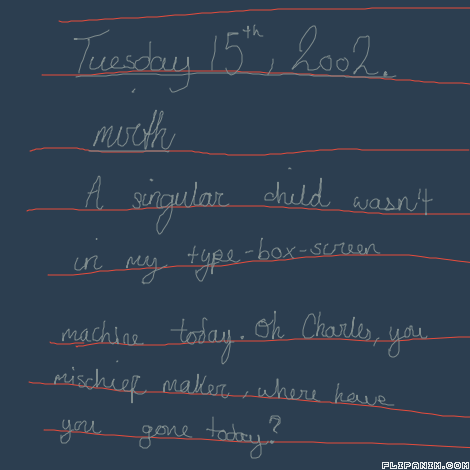 Tuesday 15th, 2002.
A singular child wasn't
in my type-box-screen
machine today. Oh Charles, you
mischief maker, where have
you gone today?
FLIPANIM.COM